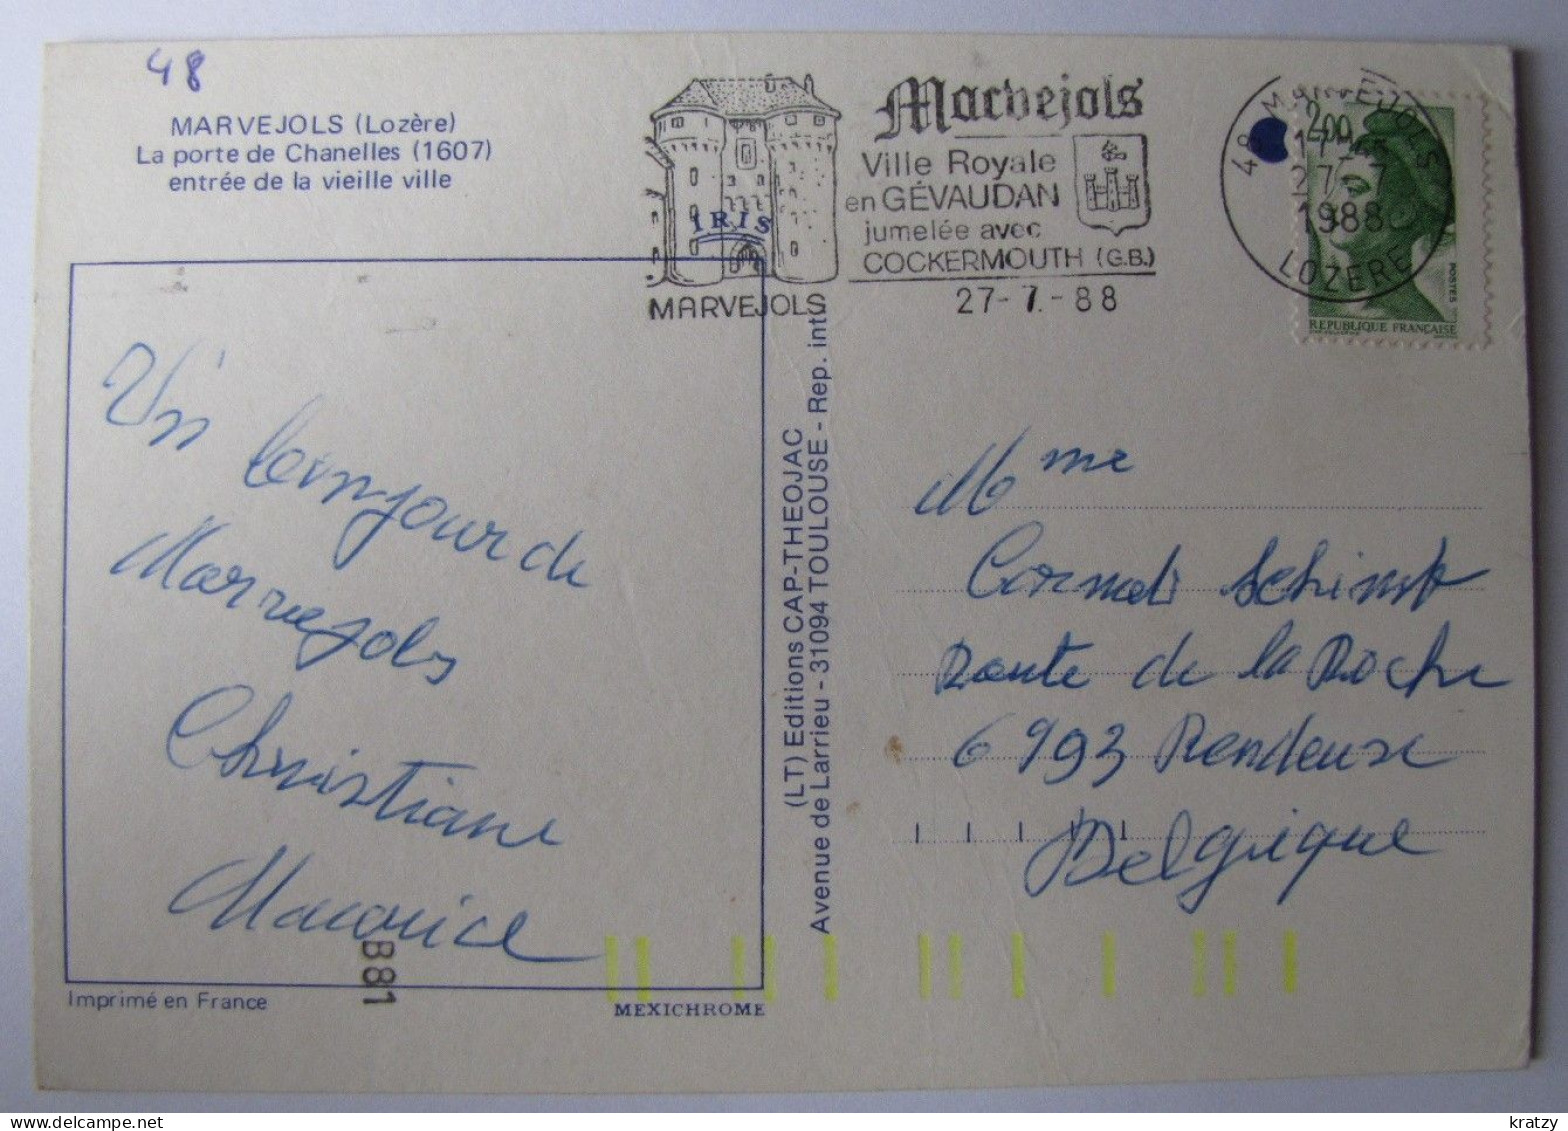 48
MARVEJOLS (Lozère)
La porte de Chanelles (1607)
entrée de la vieille ville
IRIS
MARVEJOLS
Marvejols
Ville Royale
en GÉVAUDAN
jumelée avec
COCKERMOUTH (G.B.)
27-7.-88
48 MARVEJOLS
1988
LOZERE
2,00
POSTES
REPUBLIQUE FRANCAISE
Un bonjour de
Marvejols
Christiane
Maurice
(LT) Editions CAP-THEOJAC
Avenue de Larrieu - 31094 TOULOUSE - Rep. intd
Mme
Schimp
Route de la Roche
6993 Rendeux
Belgique
B881
Imprimé en France
MEXICHROME
delcampe.net
kratzy